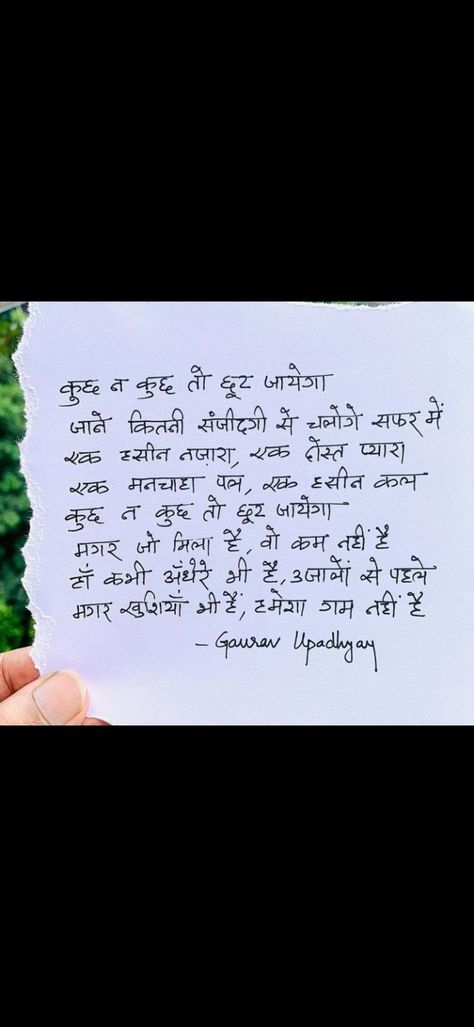 कुछ न कुछ तो छूट जायेगा
जाने कितनी संजीदगी से चलोगे सफर में
एक हसीन नज़ारा, एक दोस्त प्यारा
एक मनचाहा पल, एक हसीन कल
कुछ न कुछ तो छूट जायेगा
मगर जो मिला है, वो कम नहीं है
हाँ कभी अँधेरे भी है, उजालों से पहले
मगर खुशियाँ भी हैं, हमेशा गम नहीं है
- Gaurav Upadhyay